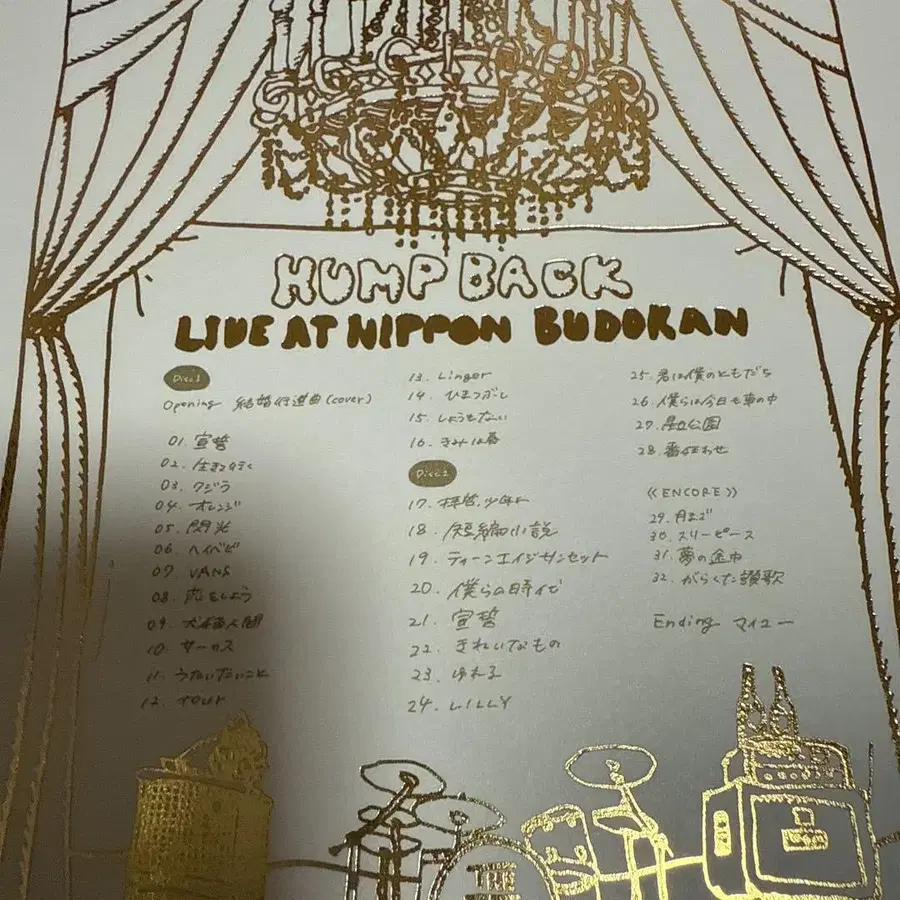 HUMP BACK
LIVE AT NIPPON BUDOKAN
Disc1
Opening 結婚行進曲(cover)
01. 宣誓
02. 生きて行く
03. クジラ
04. オレンジ
05. 閃光
06. ヘイベビ
07. VANS
08. 恋をしよう
09. 犬猫人間
10. サーカス
11. うたいたいこと
12. tour
13. Linger
14. ひまつぶし
15. しょうもない
16. きみは春
Disc2
17. 拝啓、少年よ
18. 短編小説
19. ティーンエイジサンセット
20. 僕らの時代
21. 宣誓
22. きれいなもの
23. ゆれる
24. LILLY
25. 君は僕のともだち
26. 僕らは今日も車の中
27. 星丘公園
28. 番狂わせ
《ENCORE》
29. 月まで
30. スリーピース
31. 夢の途中
32. がらくた讃歌
Ending マイユー
THE